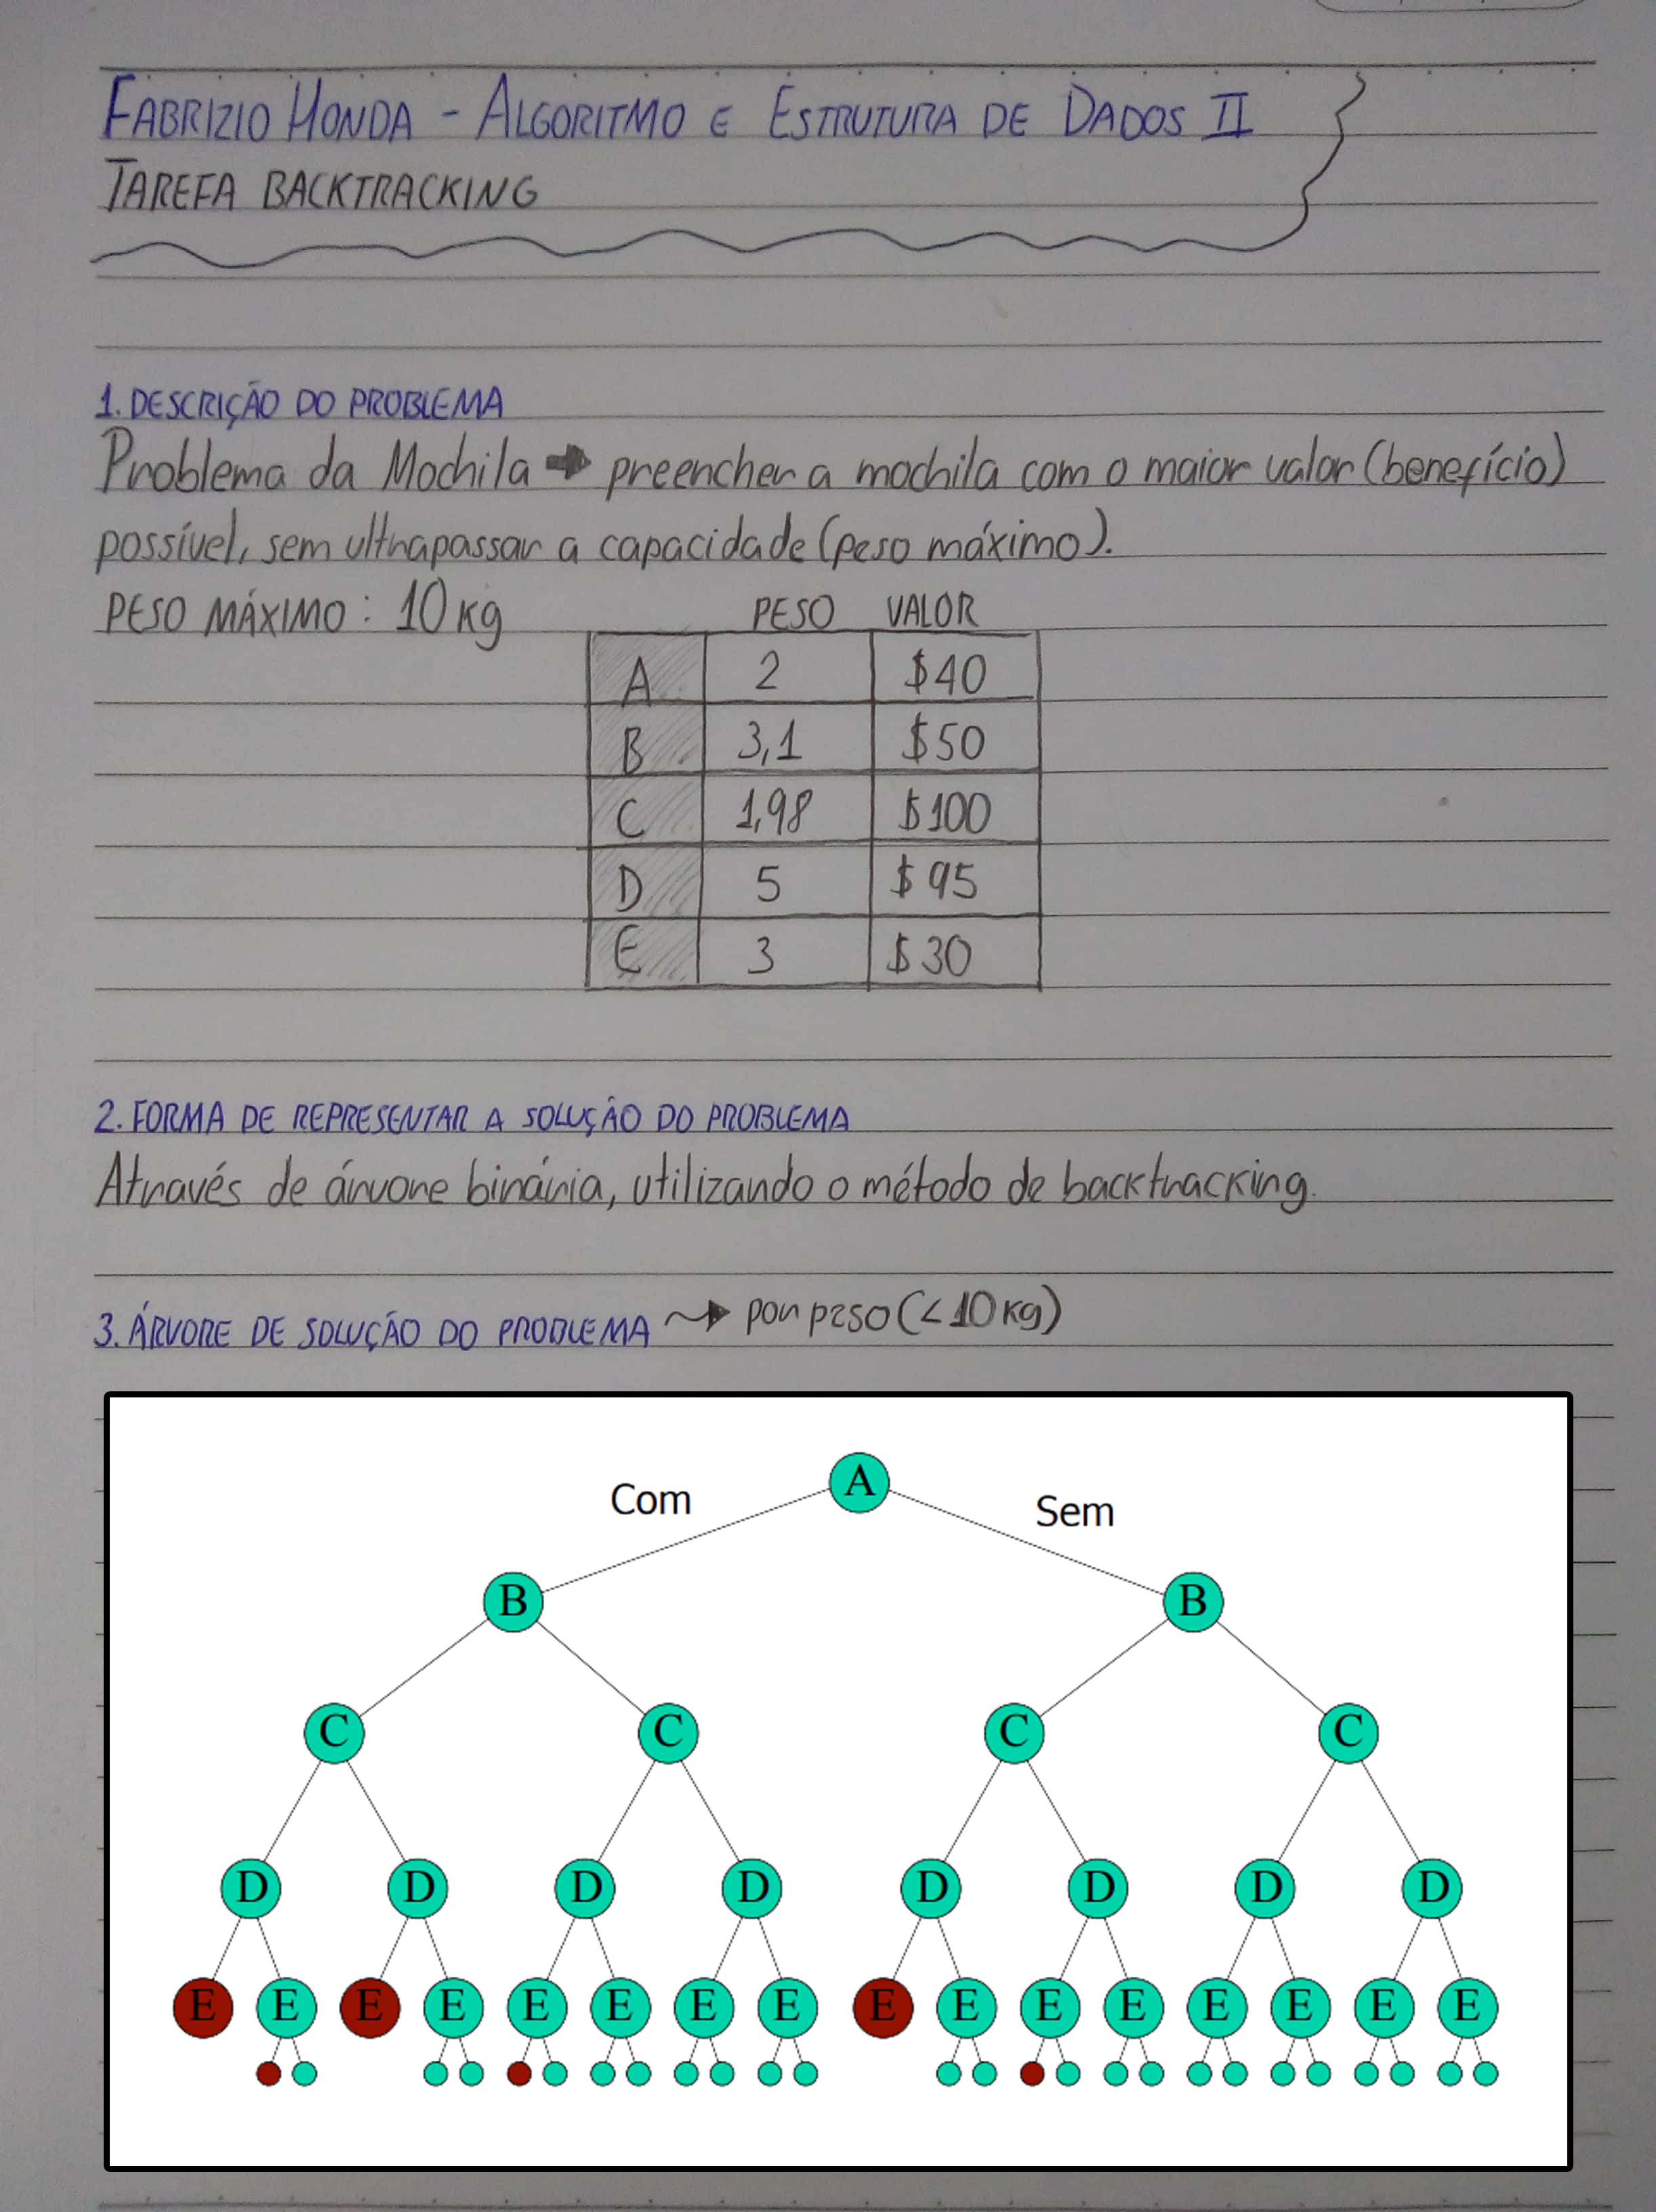 FABRIZIO HONDA - ALGORITMO E ESTRUTURA DE DADOS II
TAREFA BACKTRACKING
1. DESCRIÇÃO DO PROBLEMA
Problema da Mochila → preencher a mochila com o maior valor (benefício)
possível, sem ultrapassar a capacidade (peso máximo).
PESO MÁXIMO: 10 kg
PESO VALOR
A 2 $40
B 3,1 $50
C 1,98 $100
D 5 $95
E 3 $30
2. FORMA DE REPRESENTAR A SOLUÇÃO DO PROBLEMA
Através de árvore binária, utilizando o método de backtracking.
3. ÁRVORE DE SOLUÇÃO DO PROBLEMA → por peso (<10 kg)
A
Com Sem
B B
C C C C
D D D D D D D D
E E E E E E E E E E E E E E E E